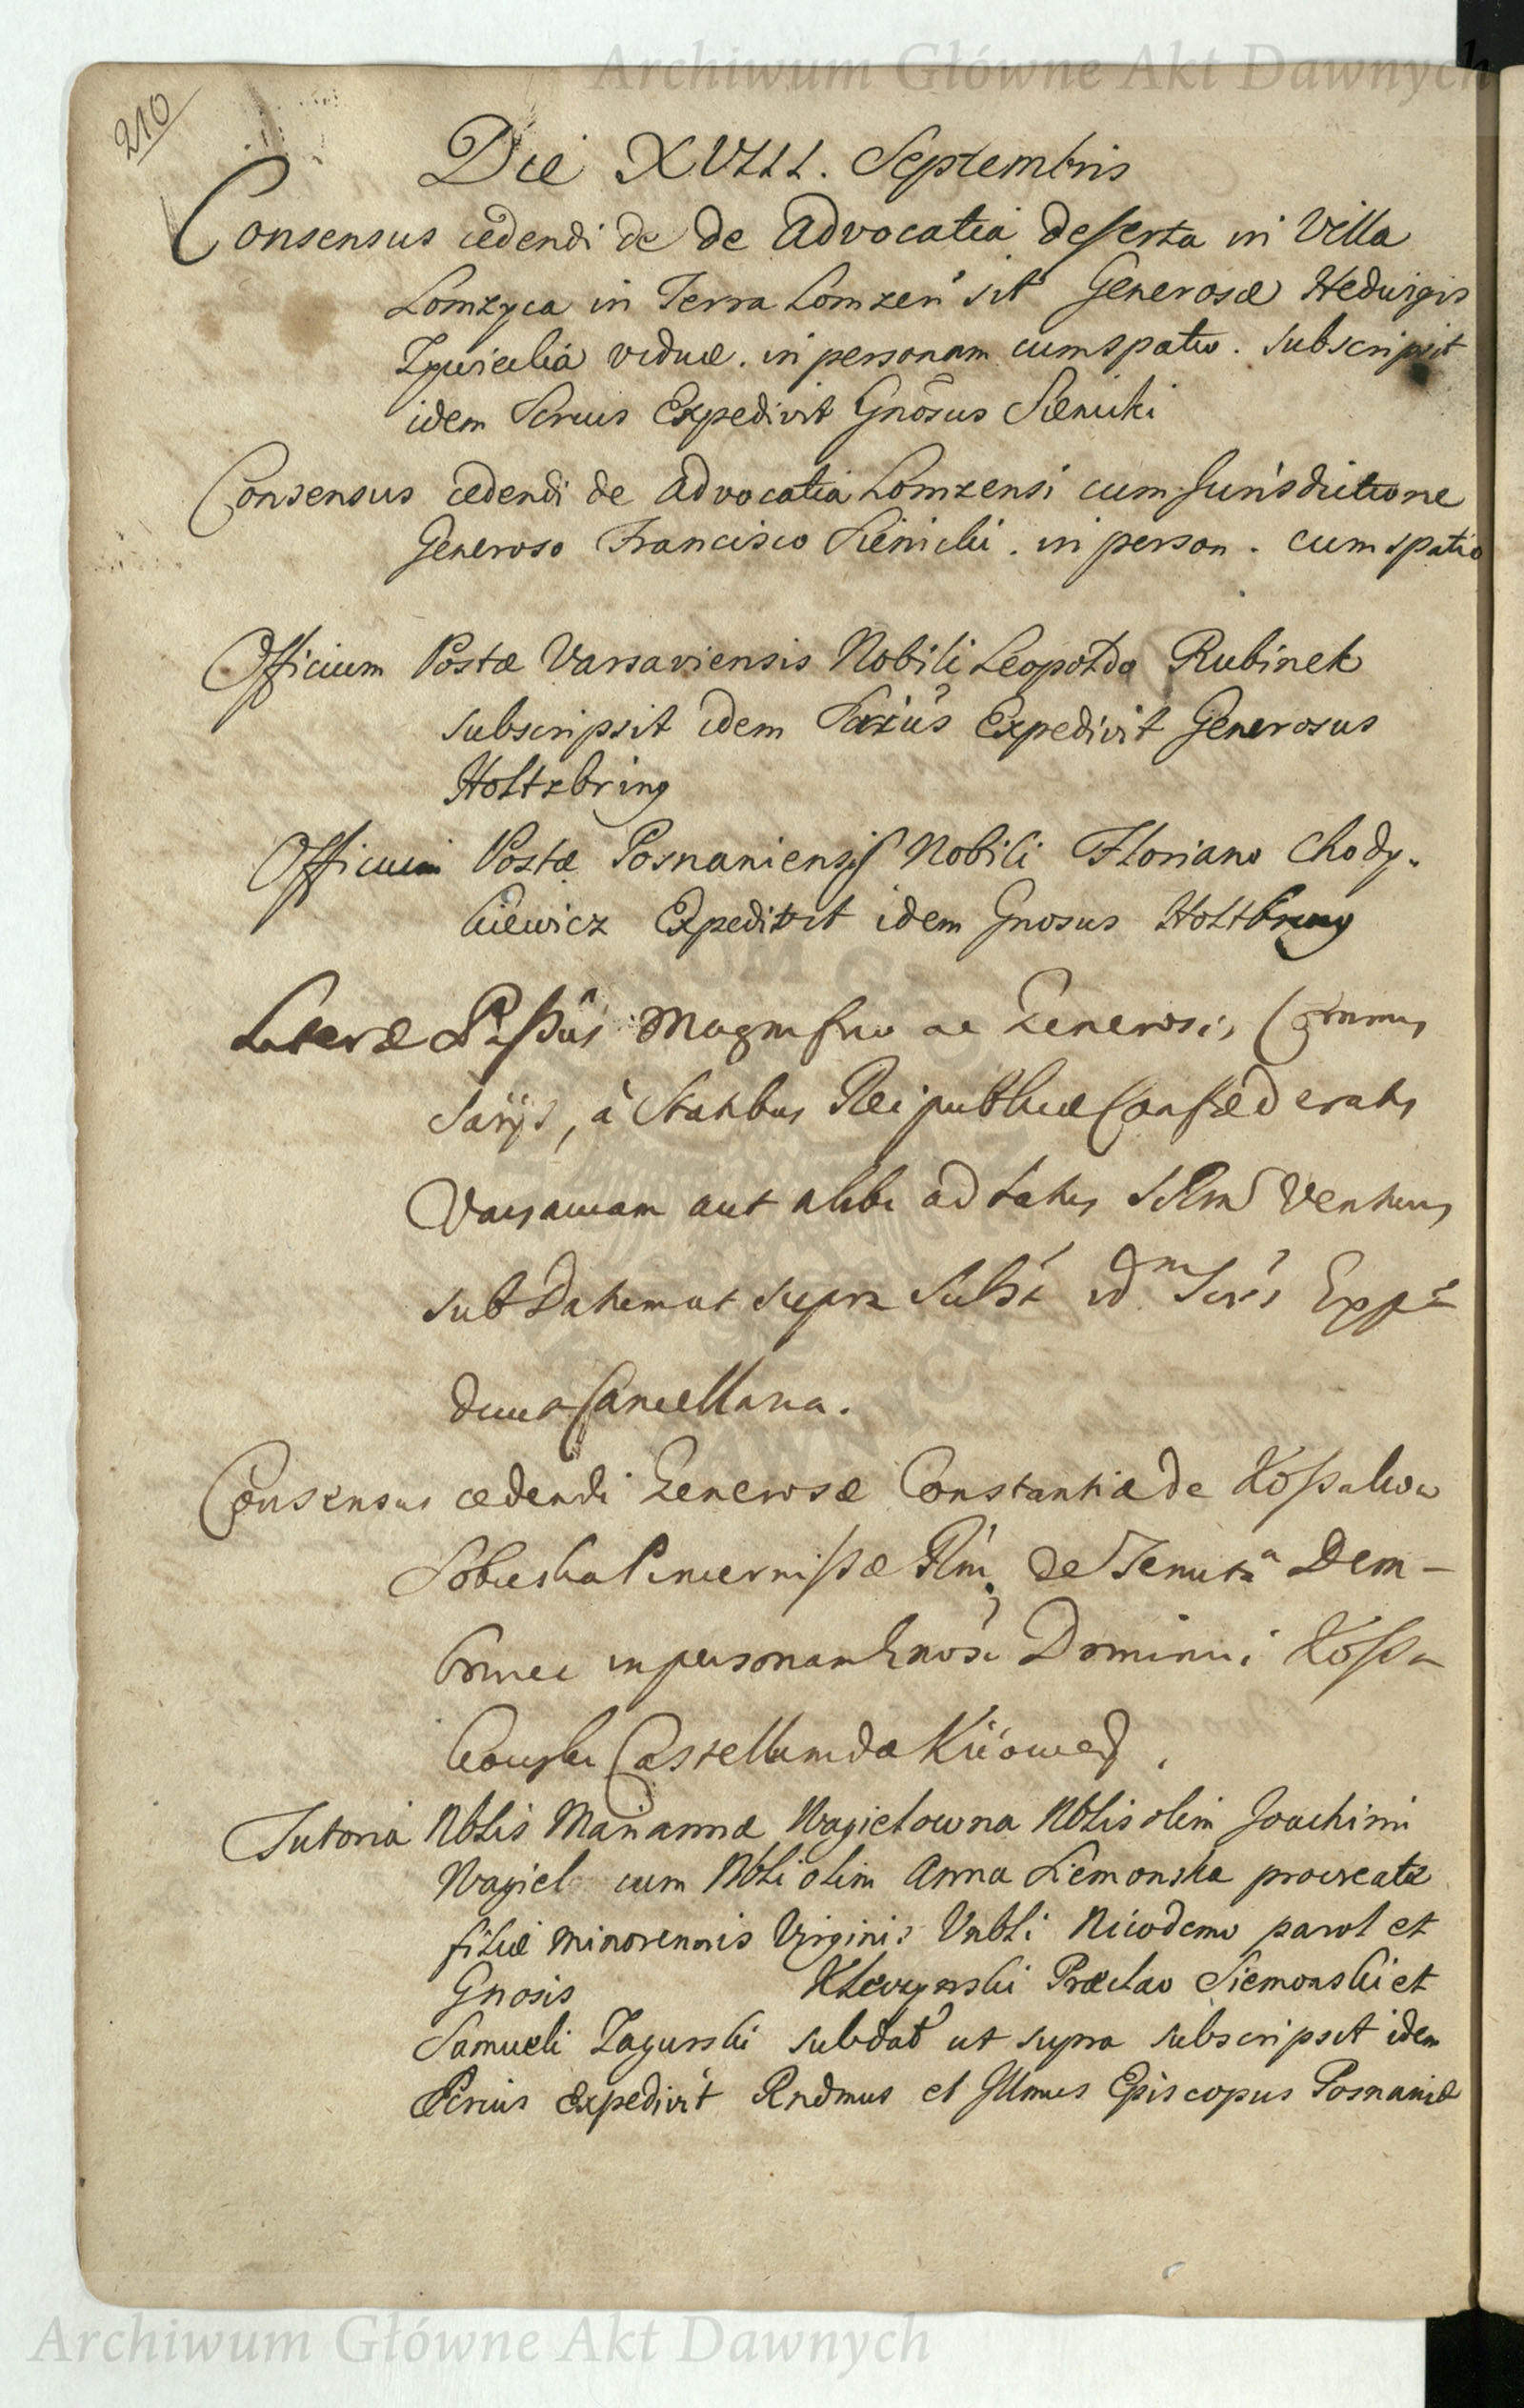 Archiwum Główne Akt Dawnych
210
Die XVIII. Septembris
Consensus cedendi de de Advocatia deserta in Villa
Lomzyca in Terra Lomzen sit Generosæ Hedvigis
viduæ. in personam cum spatio. subscripsit
idem Scrius Expedivit Gnosus Sienicki
Consensus cedendi de Advocatia Lomzensi cum Jurisdictione
Generoso Francisco Sienicki. in person. cum spatio
Officium Postæ Varsaviensis Nobili Leopoldo Rubinek
subscripsit idem Expedivit Generosus
Holtzbring
Officium Postæ Posnaniensis Nobili Floriano Chody-
kiewicz Expedivit idem Gnosus Holtbring
Literæ Magnifico ac Generosis Commis
sarijs, à Statibus Reipublicæ Confæderatis
Varsaviam aut alibi ad latus venturis
sub Dat: ut supra
Cancellaria.
Consensus cedendi Generosæ Constantiæ de Kossakow
Sobieska Pincernissæ de Tenuta Dem-
in personam Gnosi Dominici Kossa
kowski Castellanidæ Kiiowen.
Tutoria Nblis Mariannæ Wagielowna Nblis olim Joachimi
Wagiel cum Nbli olim Anna Siemonska procreatæ
filiæ minorennis Virginis Nicodemo parol et
Gnosis Præclao Siemonski et
Samueli Zagurski sub dat ut supra subscripsit idem
Scrius Expedivit Rndmus et Illmus Episcopus Posnaniæ
Archiwum Główne Akt Dawnych